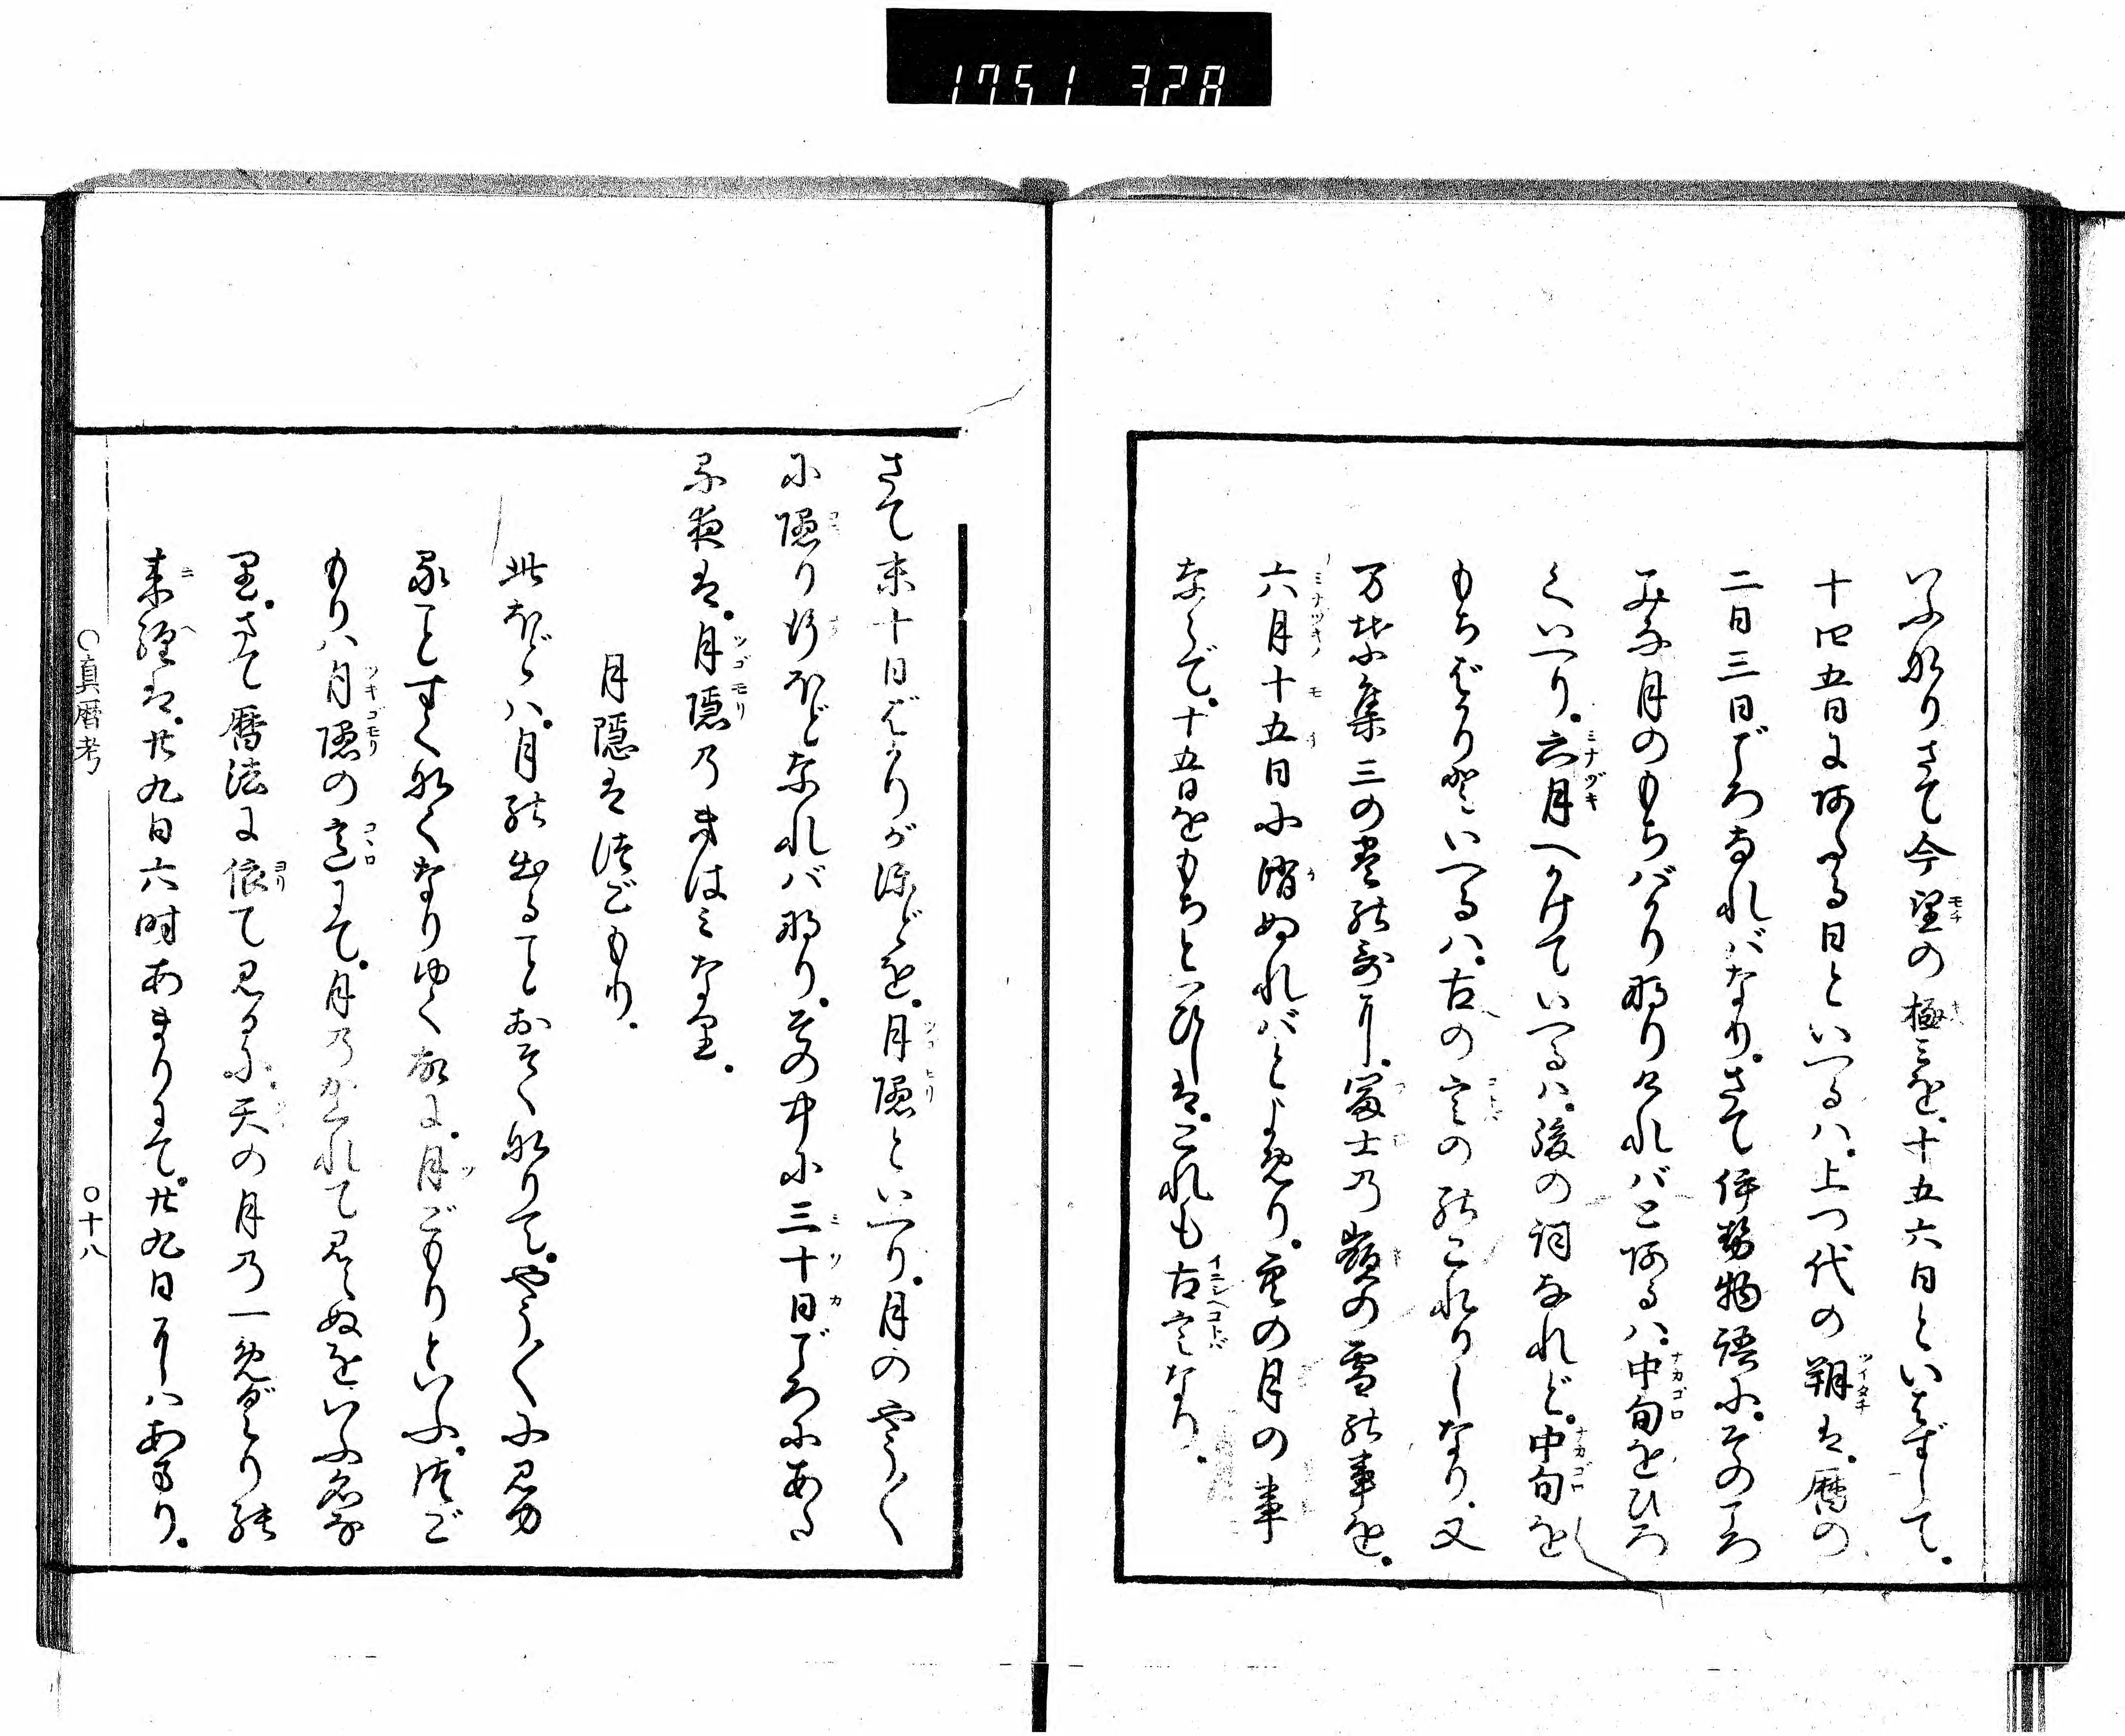 1751 328
いふ也さて今望の極みを。十五六日といはずして。
十四五日にあたる日といへるハ。上つ代の朔は。暦の
二日三日ごろなれバなり。さて伊勢物語に。そのころ
みな月のもちバかり也けれバとあるハ。中旬をひろ
くいへり。六月へかけていへるハ。後の詞なれど。中旬を
もちばかりといへるハ。古の言ののこれりしなり。又
万葉集三の巻の歌に。冨士乃嶺の雪の事を。
六月十五日に消ぬれバとよめり。空の月の事
ならで。十五日をもちといひしは。これも古言なり。
さて末十日ばかりがほどを。月隠といへり。月のやう〱
に隠り行ほどなれバ也。その中に三十日ごろにあたる
日は。月隠乃きはみなり。
月隠は津ごもり。
此ほどハ。月の出ることおそくなりて。やう〱に見
ることすくなくなりゆく故に。月ごもりといふ。つご
もりハ月隠の意にて。月乃かくれて見えぬをいふ名な
り。さて暦法に依て見るに。天の月乃一めぐりの
来経は。廿九日六時あまりにて。廿九日にハあまり。
○真暦考
○十八